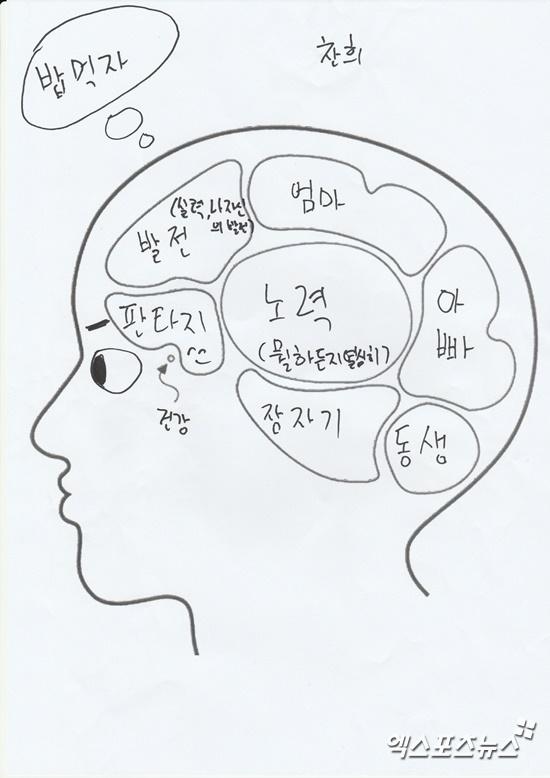 찬희
밥먹자
(실력, 나자신
의 발전)
발전
엄마
노력
(뭘하든지 열심히)
아
빠
판타지
건강
잠자기
동생
엑스포츠뉴스